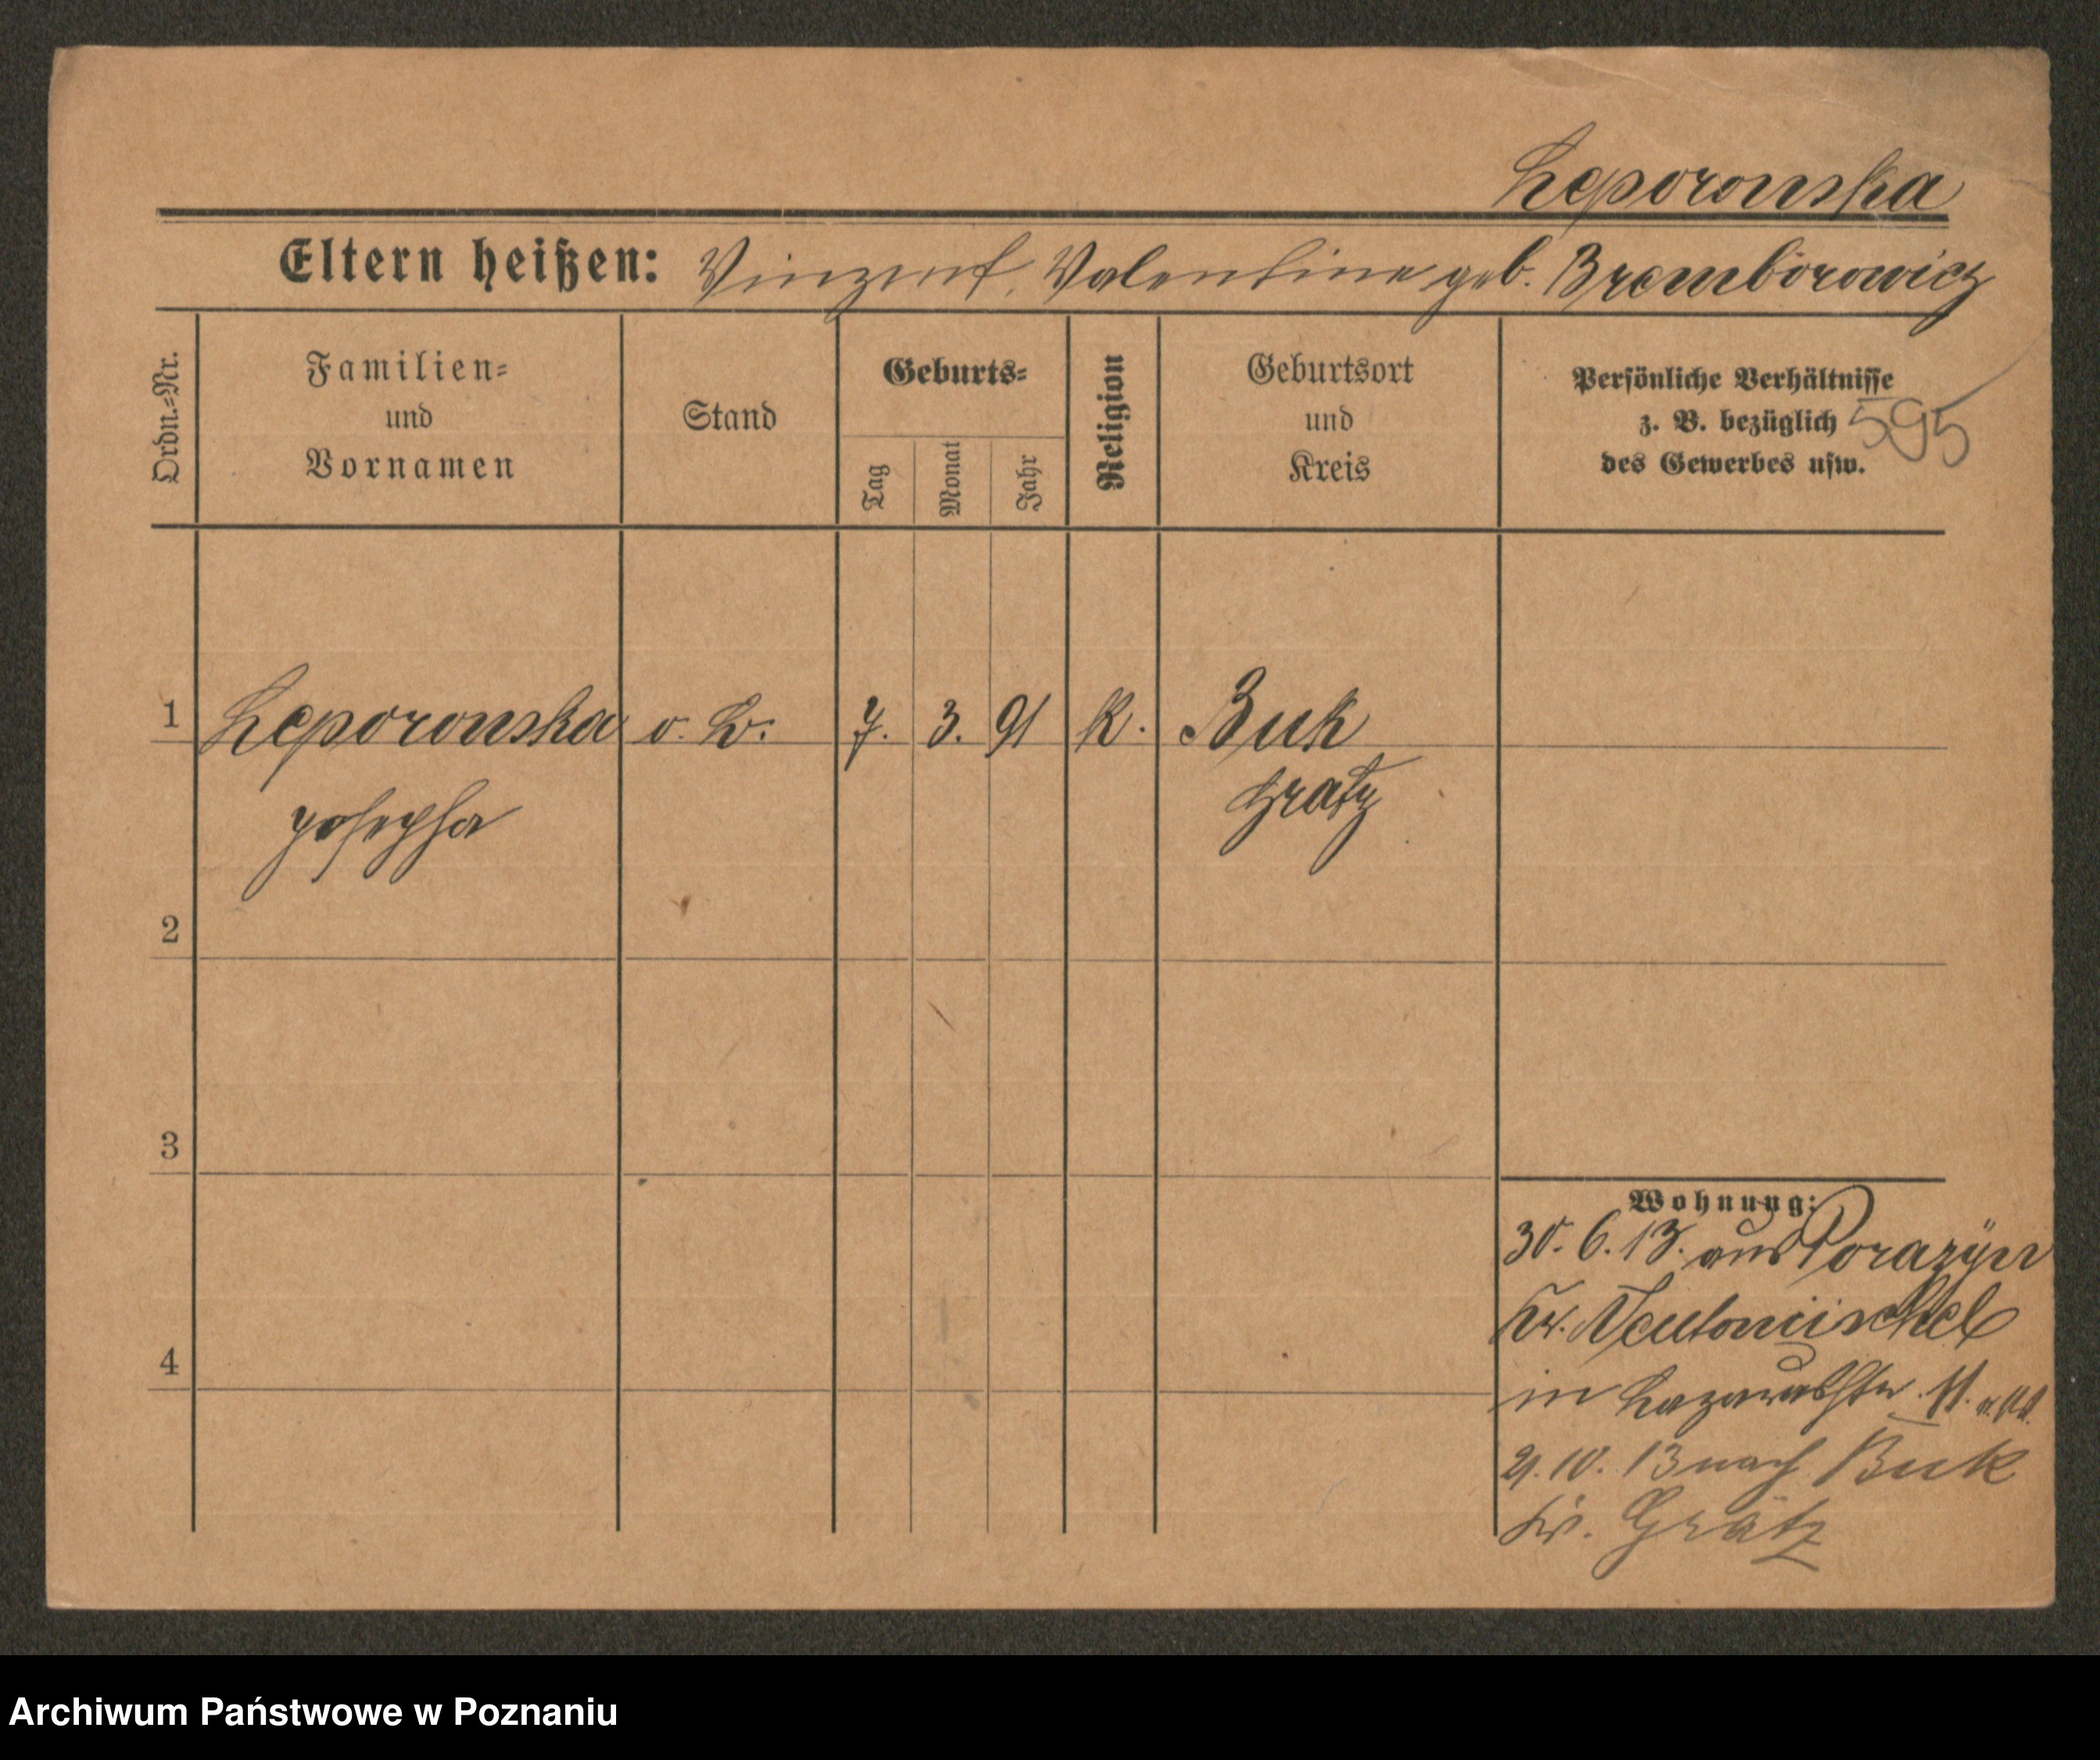 Leporowska
Eltern heißen: Vinzent, Valentine geb. Bromborowicz
Ordn.-Nr.
Familien-
und
Vornamen
Stand
Geburts-
Tag
Monat
Jahr
Religion
Geburtsort
und
Kreis
Persönliche Verhältnisse
z. B. bezüglich
des Gewerbes usw.
595
1 Leporowska o. B. 7. 3. 91 k. Buk
Josepha Grätz
2
3
4
Wohnung:
30. 6. 13. aus Porazyn
Kr. Neutomischel
in Lazarusstr. 11.
21. 10. 13 nach Buk
Kr. Grätz
Archiwum Państwowe w Poznaniu